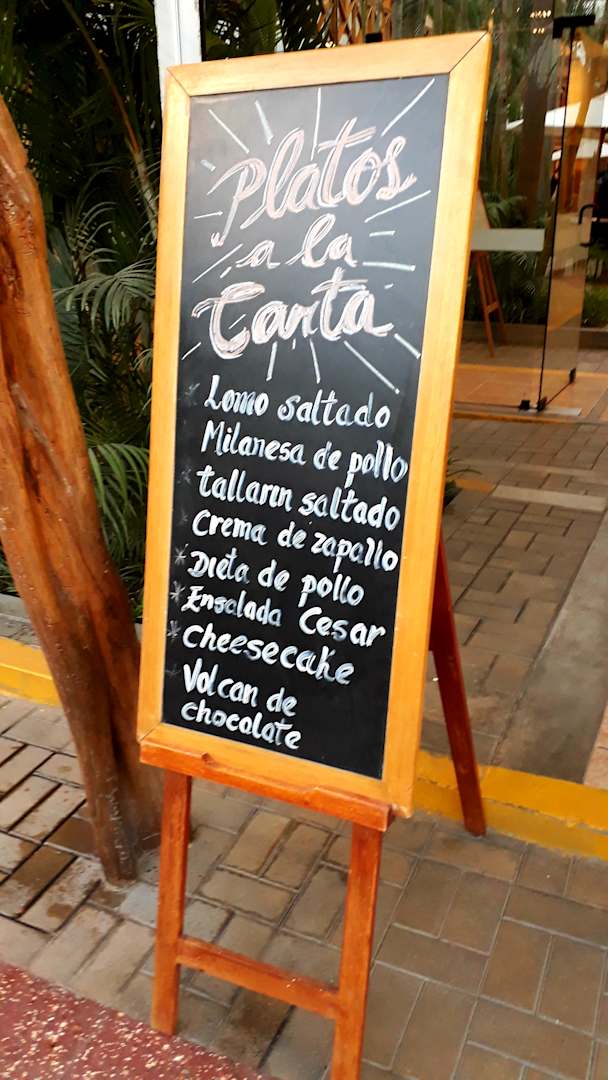 Platos
a la
Carta
* Lomo saltado
Milanesa de pollo
* tallarin saltado
* Crema de zapallo
* Dieta de pollo
* Ensalada Cesar
* Cheesecake
* Volcan de
chocolate